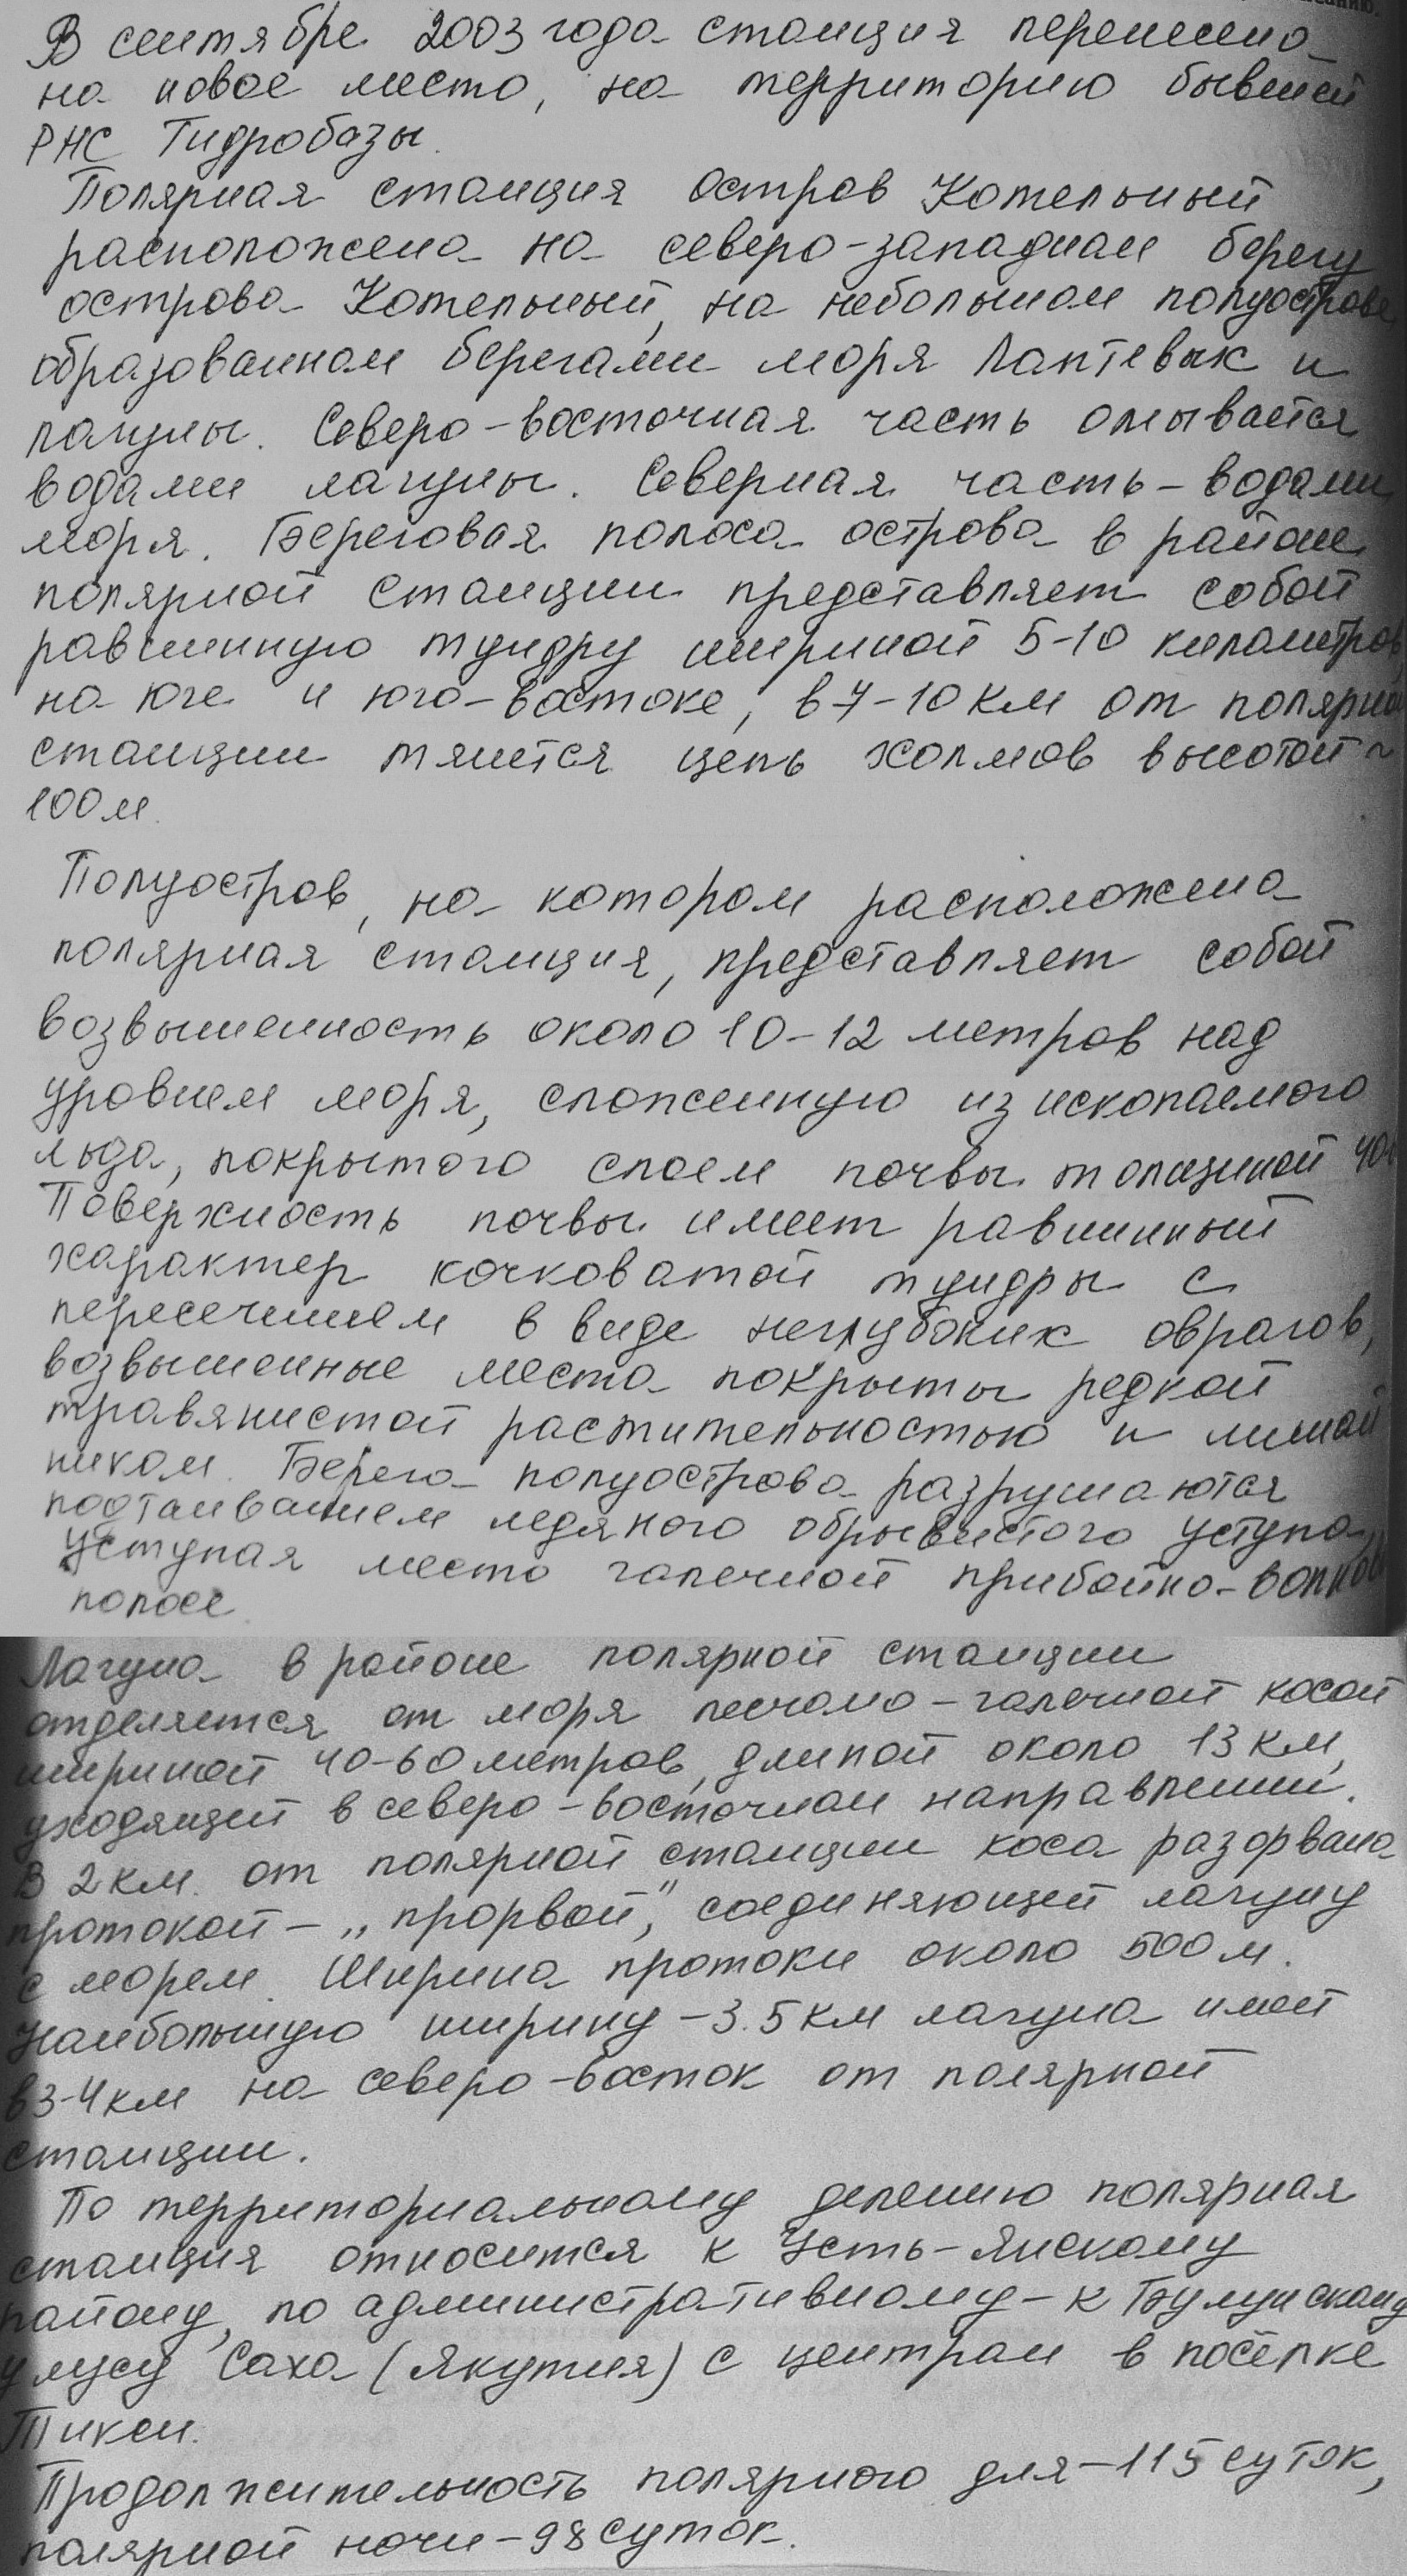 В сентябре 2003 года станция перенесена
на новое место, на территорию бывшей
РНС Гидробазы.
Полярная станция остров Котельный
расположена на северо-западном берегу
острова Котельный, на небольшом полуострове
образованном берегами моря Лаптевых и
лагуны. Северо-восточная часть омывается
водами лагуны. Северная часть - водами
моря. Береговая полоса острова в районе
полярной станции представляет собой
равнинную тундру шириной 5-10 километров,
на юге и юго-востоке, в 7-10 км от полярной
станции тянется цепь холмов высотой ~
100м.
Полуостров, на котором расположена
полярная станция, представляет собой
возвышенность около 10-12 метров над
уровнем моря, сложенную из ископаемого
льда, покрытого слоем почвы толщиной
Поверхность почвы имеет равнинный
характер кочковатой тундры с
пересечением в виде неглубоких оврагов,
возвышенные места покрыты редкой
травянистой растительностью и лишай
ником. Берега полуострова разрушаются
подтаиванием ледяного обрывистого уступа,
уступая место галечной прибойно-волновой
полосе
Лагуна в районе полярной станции
отделяется от моря песчано-галечной косой
шириной 40-60 метров, длиной около 13 км,
уходящей в северо-восточном направлении.
В 2 км. от полярной станции коса разорвана
протокой - „прорвой", соединяющей лагуну
с морем. Ширина протоки около 500м.
Наибольшую ширину - 3.5 км лагуна имеет
в 3-4 км на северо-восток от полярной
станции.
По территориальному делению полярная
станция относится к Усть-Янскому
району, по административному - к Булунскому
улусу Саха (Якутия) с центром в посёлке
Тикси.
Продолжительность полярного дня - 115 суток,
полярной ночи - 98 суток.